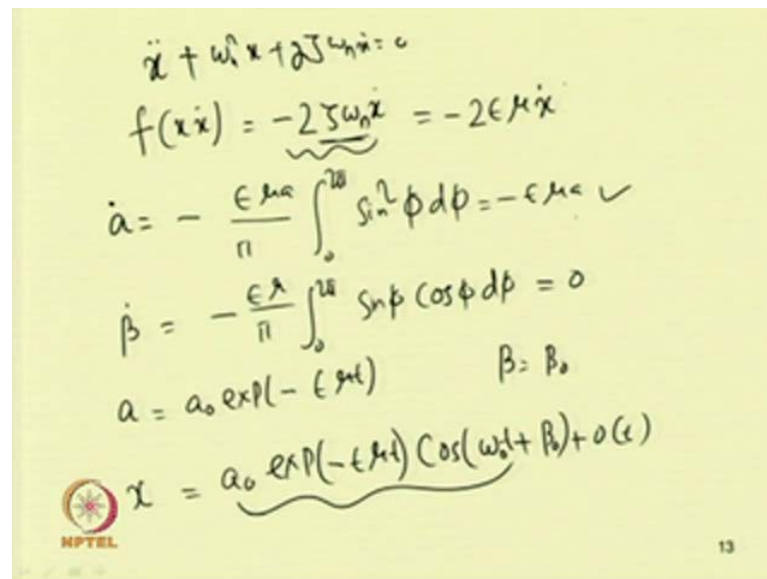 ẍ + ωₙ²x + 2ζωₙẋ = 0
f(xẋ) = -2ζωₙẋ = -2ϵμẋ
ȧ = - ϵμa/π ∫₀^2π sin²φ dφ = -ϵμa ✓
β̇ = - ϵμ/π ∫₀^2π sinφ cosφ dφ = 0
a = a₀ exp(-ϵμt) β = β₀
x = a₀ exp(-ϵμt) Cos(ω₀t + β₀) + 0(ϵ)
NPTEL
13